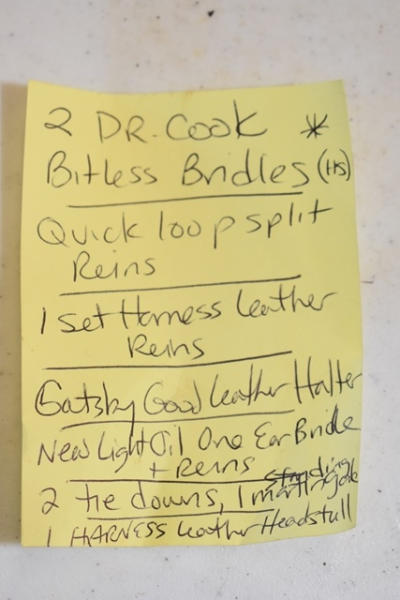 2 DR. Cook *
Bitless Bridles (HS)
Quick loop split
Reins
1 set Harness leather
Reins
Gatsby Good leather Halter
New Light Oil One Ear Bridle
+ Reins
standing
2 tie downs, 1 martingale
1 HARNESS leather Headstull